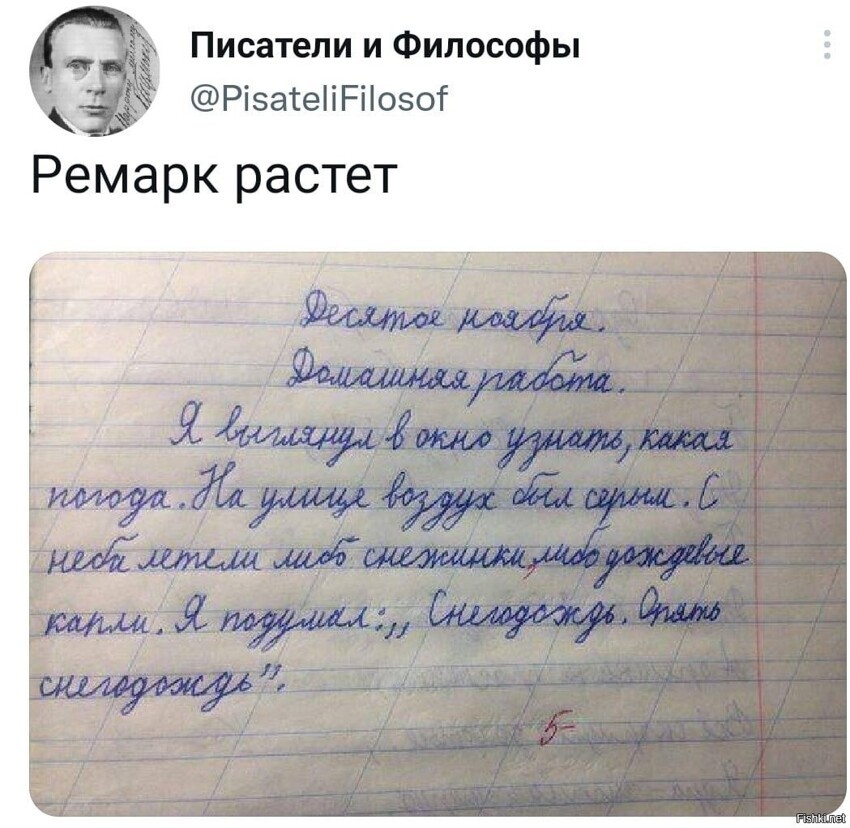 Писатели и Философы
@PisateliFilosof
Ремарк растет
Десятое ноября.
Домашняя работа.
Я выглянул в окно узнать, какая
погода. На улице воздух был серым. С
неба летели либо снежинки, либо дождевые
капли. Я подумал: „ Снегодождь. Опять
снегодождь".
5-
Fishki.net